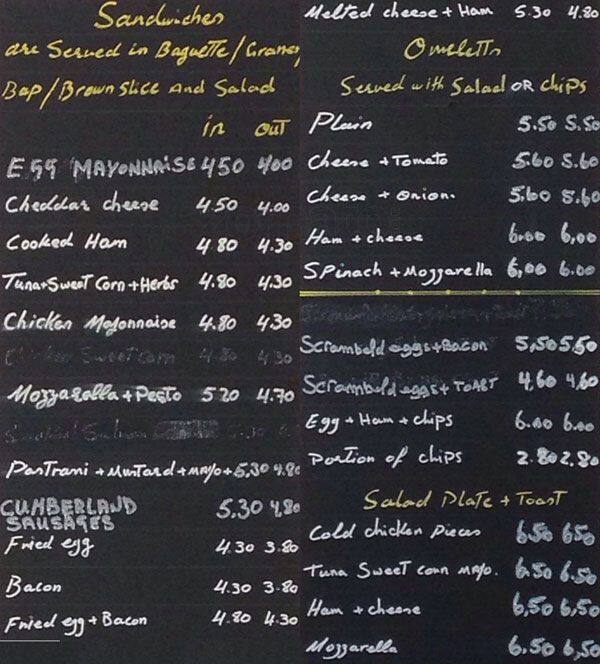 Sandwiches
are Served in Baguette/Granery
Bap/Brown Slice And Salad
in out
Egg MAYONNAISE 4.50 4.00
Cheddar cheese 4.50 4.00
Cooked Ham 4.80 4.30
Tuna+Sweet Corn+Herbs 4.80 4.30
Chicken Mayonnaise 4.80 4.30
Chicken Sweetcorn 4.80 4.30
Mozzarella+Pesto 5.20 4.70
Smoked Salmon 5.30
Pastrami+Mustard+mayo+ 5.30 4.80
CUMBERLAND
SAUSAGES 5.30 4.80
Fried egg 4.30 3.80
Bacon 4.30 3.80
Fried egg+Bacon 4.80 4.30
Melted cheese+Ham 5.30 4.80
Omeletts
Served with Salad OR chips
Plain 5.50 5.50
Cheese+Tomato 5.60 5.60
Cheese+Onion. 5.60 5.60
Ham+cheese 6.00 6.00
Spinach+Mozzarella 6.00 6.00
Scrambeld eggs+Bacon 5.50 5.50
Scrambeld eggs+TOAST 4.60 4.60
Egg+Ham+chips 6.00 6.00
Portion of chips 2.80 2.80
Salad Plate+Toast
Cold chicken pieces 6.50 6.50
Tuna Sweet corn mayo. 6.50 6.50
Ham+cheese 6.50 6.50
Mozzarella 6.50 6.50